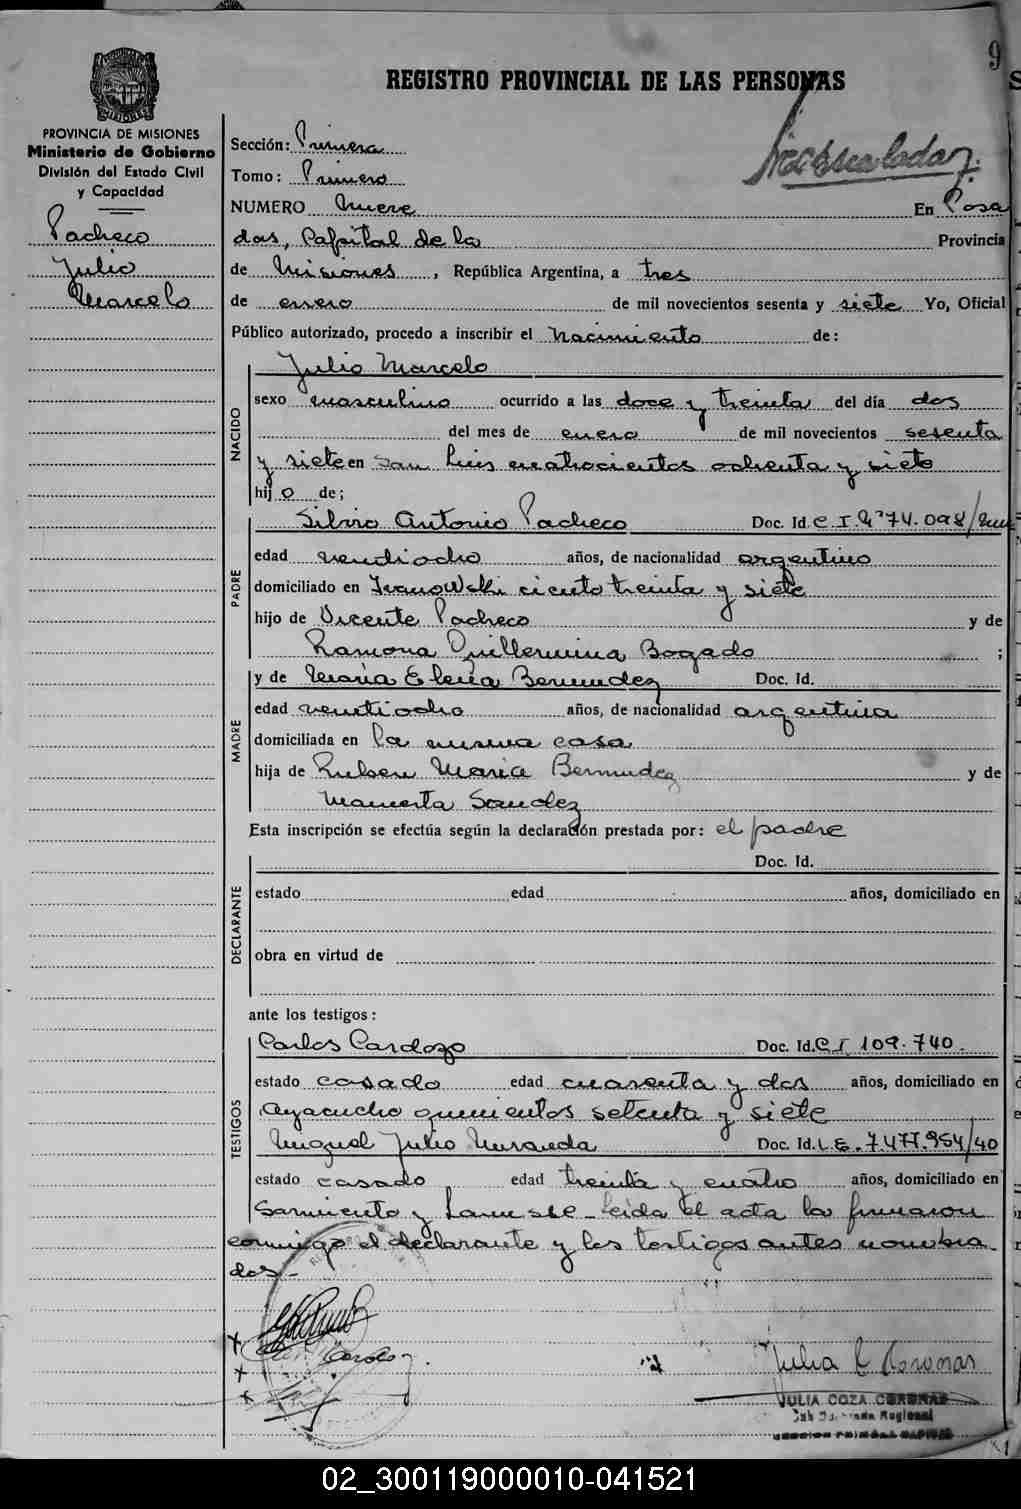 9
REGISTRO PROVINCIAL DE LAS PERSONAS
PROVINCIA DE MISIONES
Ministerio de Gobierno
División del Estado Civil
y Capacidad
Pacheco
Julio
Marcelo
Sección: Primera
Tomo: Primero
NUMERO nueve En Posa
das, Capital de la Provincia
de Misiones, República Argentina, a tres
de enero de mil novecientos sesenta y siete Yo, Oficial
Público autorizado, procedo a inscribir el nacimiento de:
Julio Marcelo
NACIDO
sexo masculino ocurrido a las doce y treinta del día dos
del mes de enero de mil novecientos sesenta
y siete en San Luis cuatrocientos ochenta y siete
hijo de;
PADRE
Silvio Antonio Pacheco Doc. Id. C.I.
edad veintiocho años, de nacionalidad argentino
domiciliado en Ivanowski ciento treinta y siete
hijo de Vicente Pacheco y de
Ramona Guillermina Bogado ;
MADRE
y de María Elena Bermudez Doc. Id.
edad veintiocho años, de nacionalidad argentina
domiciliada en la misma casa
hija de Ruben Maria Bermudez y de
Mamerta Sandez
Esta inscripción se efectúa según la declaración prestada por: el padre
DECLARANTE
Doc. Id.
estado edad años, domiciliado en
obra en virtud de
ante los testigos:
TESTIGOS
Carlos Cardozo Doc. Id. C.I. 109.740.
estado casado edad cuarenta y dos años, domiciliado en
Ayacucho quinientos setenta y siete
Miguel Julio Miranda Doc. Id. L.E. 7.477.954/40
estado casado edad treinta y cuatro años, domiciliado en
Sarmiento y - Leida el acta la firmaron
conmigo el declarante y los testigos antes nombra
dos.-
Julia C Coronas
JULIA COZA CORONAS
02_300119000010-041521